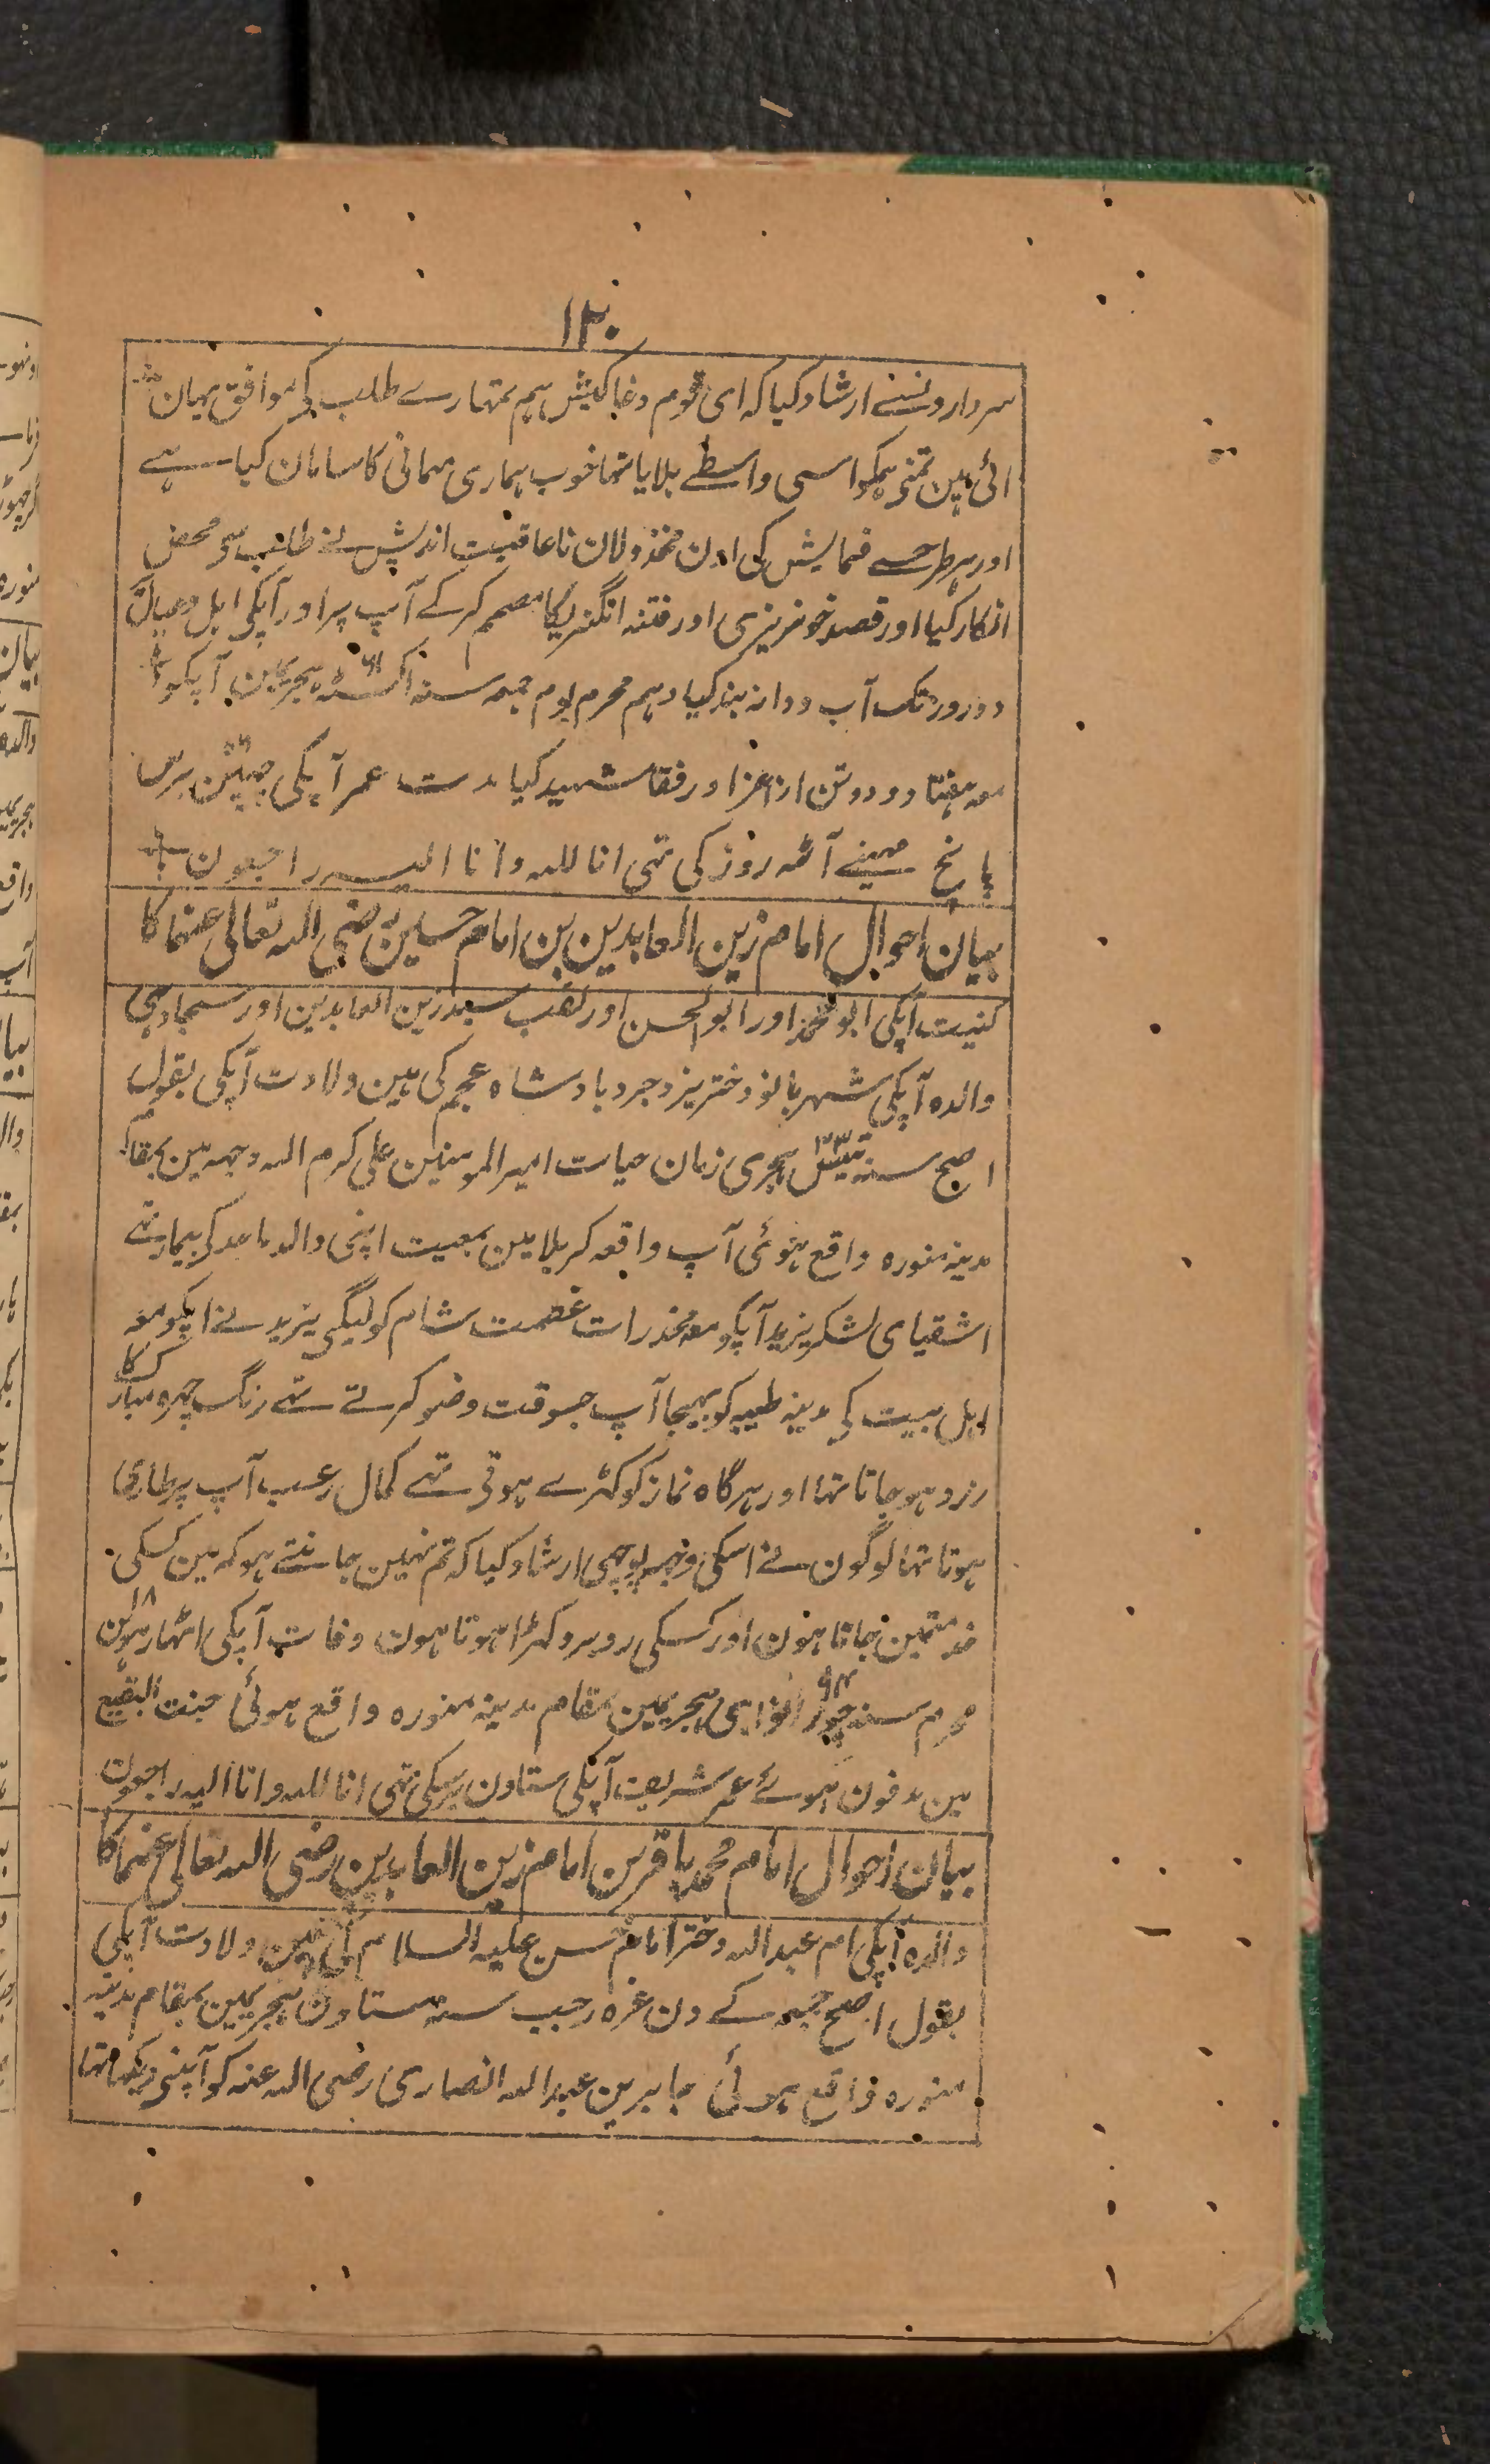 ۱۳۰
سردارونسے ارشاد کیا کہ ای قوم دغا کیش ہم تمہارے طلب کی موافق یہان
ائی ہین تمنی ہمکو اسی واسطے بلایا تہا خوب ہماری مہمانی کا سامان کیا ہے
اور ہر طرحسے فہمایش کی اون مخذولان ناعاقبت اندیش نے طلب سی محض
انکار کیا اور قصد خونریزی اور فتنہ انگیزیکا مصمم کر کے آپ پر اور آپکی اہل و عیال
دو روز تک آب و دانہ بند کیا دہم محرم یوم جمعہ سنہ اکسٹہہ ۶۱ ہجریمین آپکو
معہ ہفتاد و دو تن از اعزا و رفقا شہید کیا مدت عمر آپکی چہپن ۵۶ برس
پانچ مہینے آٹہہ روز کی تہی انا للہ وانا الیہ راجعون
بیان احوال امام زین العابدین بن امام حسین رضی اللہ تعالی عنہما کا
کنیت آپکی ابو محمد اور ابو الحسن اور لقب سید زین العابدین اور سجاد ہی
والدہ آپکی شہر بانو دختر یزدجرد بادشاہ عجم کی ہین ولادت آپکی بقول
اصح سنہ تینتیس ۳۳ ہجری زمان حیات امیر المومنین علی کرم اللہ وجہہ مین بمقام
مدینہ منورہ واقع ہنوئی آپ واقعہ کربلا مین بمعیت اپنی والد ماجد کی بیمار تہے
اشقیای لشکر یزید آپکو معہ مخدرات عصمت شام کو لیگی یزید نے اپکو معہ
اہل بیت کی مدینہ طیبہ کو بہیجا آپ جسوقت وضو کرتے تہے رنگ چہرہ مبارک کا
زرد ہو جاتا تہا اور ہر گاہ نماز کو کہڑے ہوتی تہے کمال رعب آپ پر طاری
ہوتا تہا لوگون نے اسکی وجہہ پوچہی ارشاد کیا کہ تم نہین جانتے ہو کہ مین کسکی
خدمتمین جاتا ہون اور کسکی روبرو کہڑا ہوتا ہون وفات آپکی اٹہارہوین ۱۸
محرم سنہ چورانوی ۹۴ ہجریمین بمقام مدینہ منورہ واقع ہوئی جنت البقیع
مین مدفون ہوئے عمر شریف آپکی ستاون برسکی تہی انا للہ وانا الیہ راجعون
بیان احوال امام محمد باقر بن امام زین العابدین رضی اللہ تعالی عنہما کا
والدہ آپکی ام عبد اللہ دختر امام حسن علیہ السلام کی ہین ولادت آپکی
بقول اصح جمعہ کے دن غرہ رجب سنہ ستاون ہجریمین بمقام مدینہ
منورہ واقع ہوئی جابر بن عبد اللہ انصاری رضی اللہ عنہ کو آپنی دیکہا تہا